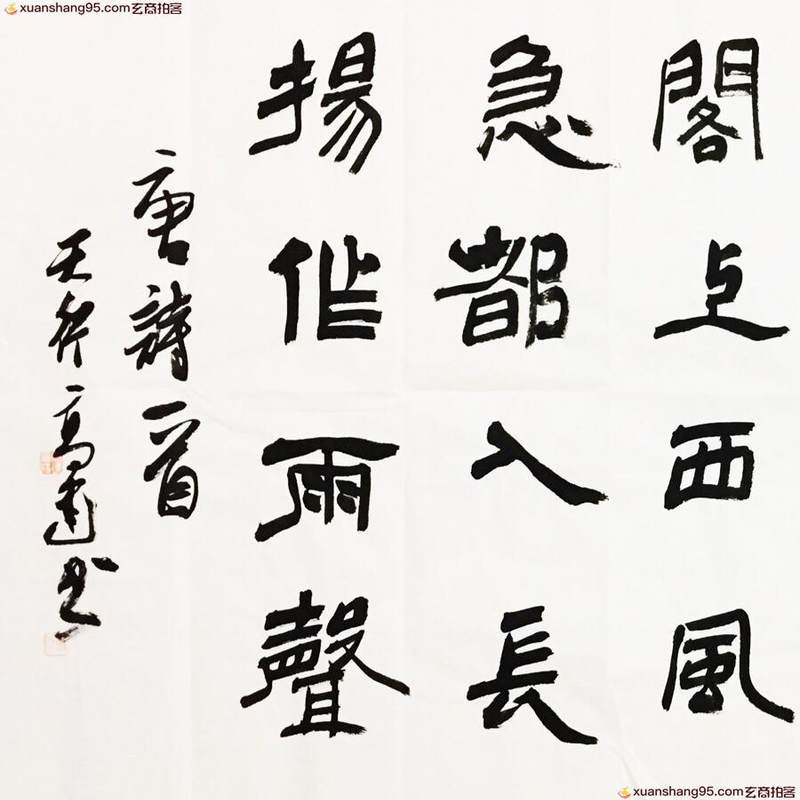 xuanshang95.com玄商拍客
閣上西風
急都入長
揚作雨聲
唐詩一首
天 高 书
xuanshang95.com玄商拍客